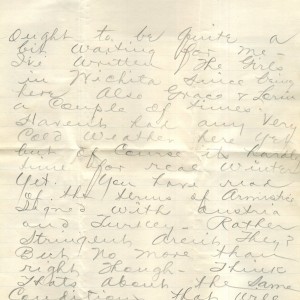 Ought to be quite a
bit waiting for me -
I've written The Girls
in Wichita since being
here Also Grace &
a Couple of times.
Haven't had any Very
Cold Weather here Yet
but of Course its hardly
time for real Winter
Yet. You have read
of the terms of Armistice
Signed with Austria
and Turkey - Rather
Stringent Arent They?
But No more than
right Though - Think
Thats about the Same
Conditions that We'll